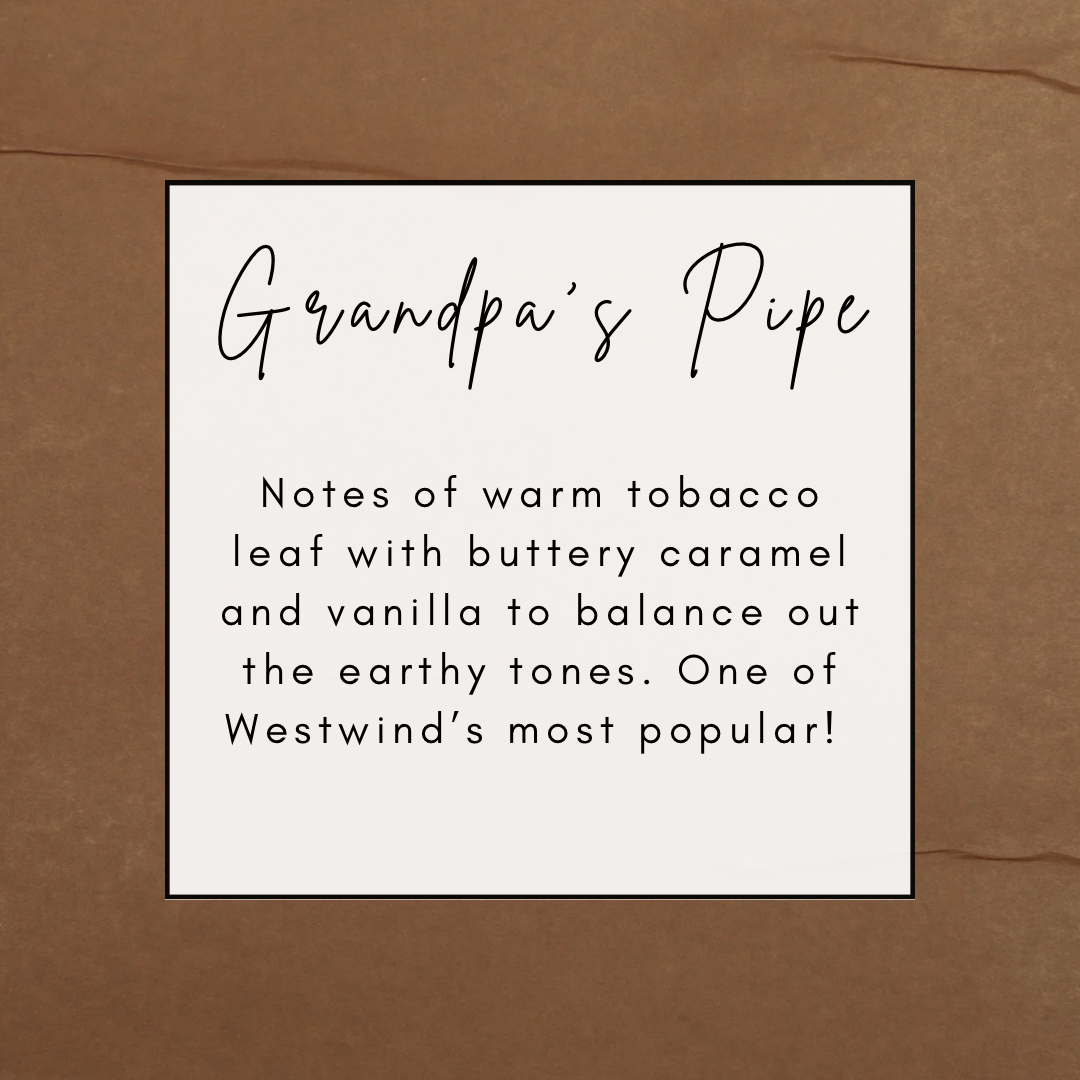 Grandpa's Pipe
Notes of warm tobacco
leaf with buttery caramel
and vanilla to balance out
the earthy tones. One of
Westwind's most popular!